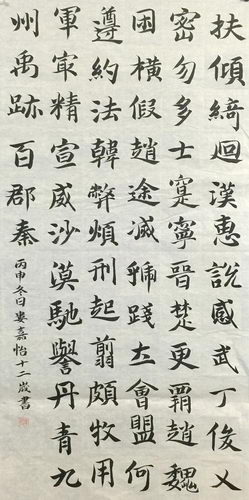 扶傾綺迴漢惠說感武丁俊乂
密勿多士寔寧晉楚更霸趙魏
困橫假趙途滅虢踐土會盟何
遵約法韓弊煩刑起翦頗牧用
軍㝡精宣威沙漠馳譽丹青九
州禹跡百郡秦
丙申冬日婁嘉怡十二歲書